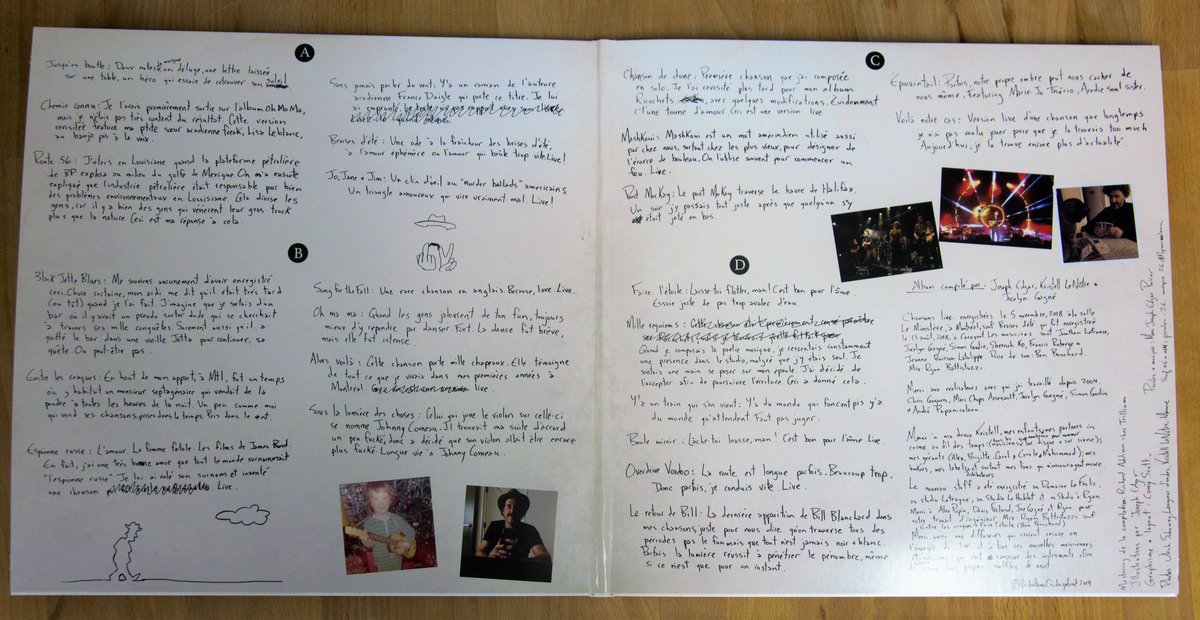 A
Jusqu'au boutte: Deux notes de musique, un déluge, une lettre laissée
sur une table, un héro qui essaie de retrouver son soleil
Chemin connu: Je l'avais premièrement sortie sur l'album Oh Ma Ma,
mais je n'étais pas très content du résultat. Cette version
revisitée feature ma ptite sœur acadienne freak, Lisa Leblanc,
au banjo pis à la voix.
Route 56: J'étais en Louisiane quand la plateforme pétrolière
de BP explosa au milieu du golfe de Mexique. On m'a ensuite
expliqué que l'industrie pétrolière était responsable pour bien
des problèmes environnementaux en Louisiane. Cela divise les
gens, car il y a bien des gens qui vénèrent leur gros truck
plus que la nature. Ceci est ma réponse à cela.
Sans jamais parler du vent: Y'a un roman de l'auteure
acadienne France Daigle qui porte ce titre. Je lui
ai emprunté
Brises d'été: Une ode à la fraîcheur des brises d'été,
à l'amour éphémère ou l'amour qui brûle trop vite. Live!
Jo, Jane + Jim: Un clin d'œil au "murder ballads" américains
Un triangle amoureux qui vire vraiment mal. Live!
B
Black Jetta Blues: Me souviens aucunement d'avoir enregistré
ceci. Chose certaine, mon ordi me dit qu'il était très tard
(ou tôt) quand je l'ai fait. J'imagine que je sortais d'un
bar où il y avait un pseudo surfer dude qui se cherchait
à travers ses mille conquêtes. Sûrement aussi qu'il a
quitté le bar dans une vieille Jetta pour continuer sa
quête. Ou peut-être pas.
Entre les craques: En haut de mon appart, à Mtl, fut un temps
où y habitait un monsieur septagénaire qui vendait de la
poudre à toutes les heures de la nuit. Un peu comme moi
qui vend ses chansons, prises dans le temps. Pris dans le
Espionne russe: L'amour. La femme fatale. Les films de James Bond.
En fait, j'ai une très bonne amie que tout le monde surnommait
"l'espionne russe". Je lui ai volé son surnom et inventé
une chanson Live.
Song for the Fall: Une rare chanson en anglais. Because, love. Live
Oh ma ma: Quand les gens jalousent de ton fun, toujours
mieux d'y répondre par danser fort. La danse fut brève,
mais elle fut intense
Alias voilà: Cette chanson porte mille chapeaux. Elle témoigne
de tout ce que je vivais dans mes premières années à
Montréal. live
Sous la lumière des choses: Celui qui joue le violon sur celle-ci
se nomme Johnny Comeau. Il trouvait ma suite d'accord
un peu fucké, donc a décidé que son violon allait être encore
plus fucké. Longue vie à Johnny Comeau.
C
Chanson de dune: Première chanson que j'ai composée
en solo. Je l'ai revisité plus tard pour mon album
Ricochets, avec quelques modifications. Évidemment
c't'une toune d'amour. Ceci est une version live
Mashkoui: Mashkoui est un mot amérindien utilisé aussi
par chez nous, surtout chez les plus vieux, pour désigner de
l'écorce de bouleau. On l'utilise souvent pour commencer un
feu. Live.
Pont MacKay: Le pont MacKay traverse le havre de Halifax.
Un soir j'y passais tout juste après que quelqu'un s'y
était jeté en bas.
Épouvantail: Parfois, notre propre ombre peut nous cacher de
nous même. Featuring Marie-Jo Thério, Acadie soul sister.
Voilà notre cas: Version live d'une chanson que longtemps
je n'ai pas voulu jouer parce que je la trouvais too much
Aujourd'hui, je la trouve encore plus d'actualité.
D
Faire l'étoile: Laisse-toi flotter, man! C'est bon pour l'âme.
Essaie juste de pas trop avaler d'eau
Mille requiems:
Quand je composais la partie musique, je ressentais constamment
une présence dans le studio, malgré que j'y étais seul. Je
sentais une main se poser sur mon épaule. J'ai décidé de
l'accepter afin de poursuivre l'écriture. Ceci a donné cela.
Y'a un train qui s'en vient: Y'a du monde qui foncent pis y'a
du monde qu'attendent. Faut pas juger.
Boule miroir: Lâche-toi lousse, man! C'est bon pour l'âme. Live.
Overdrive Voodoo: La route est longue parfois. Beaucoup trop.
Donc parfois, je conduis vite. Live.
Le retour de Bill: La dernière apparition de Bill Blanchard dans
mes chansons, juste pour nous dire qu'on traverse tous des
périodes pas le fun mais que tout n'est jamais noir + blanc.
Parfois la lumière réussit à pénétrer le pénombre, même
si ce n'est que pour un instant.
Album compilé par: Joseph Edgar, Kristell LeNôtre +
Jocelyn Gagné
Chansons live: enregistrées le 5 novembre, 2018 à la salle
Le Ministère, à Montréal, sauf Brises d'été qui fut enregistrée
le 15 août, 2018, à Caraquet. Les musiciens sont Jonathan
Jocelyn Gagné, Simon Godin, Sheenah Ko, Francis Roberge +
Prise de son: Ben Bouchard
Mix Ryan Battistuzzi.
Merci aux réalisateurs avec qui j'ai travaillé depuis 2004:
Chris Goguen, Marc Chops Arsenault, Jocelyn Gagné, Simon Godin
+ André Papanicolaou
©Productions Cordageland 2019